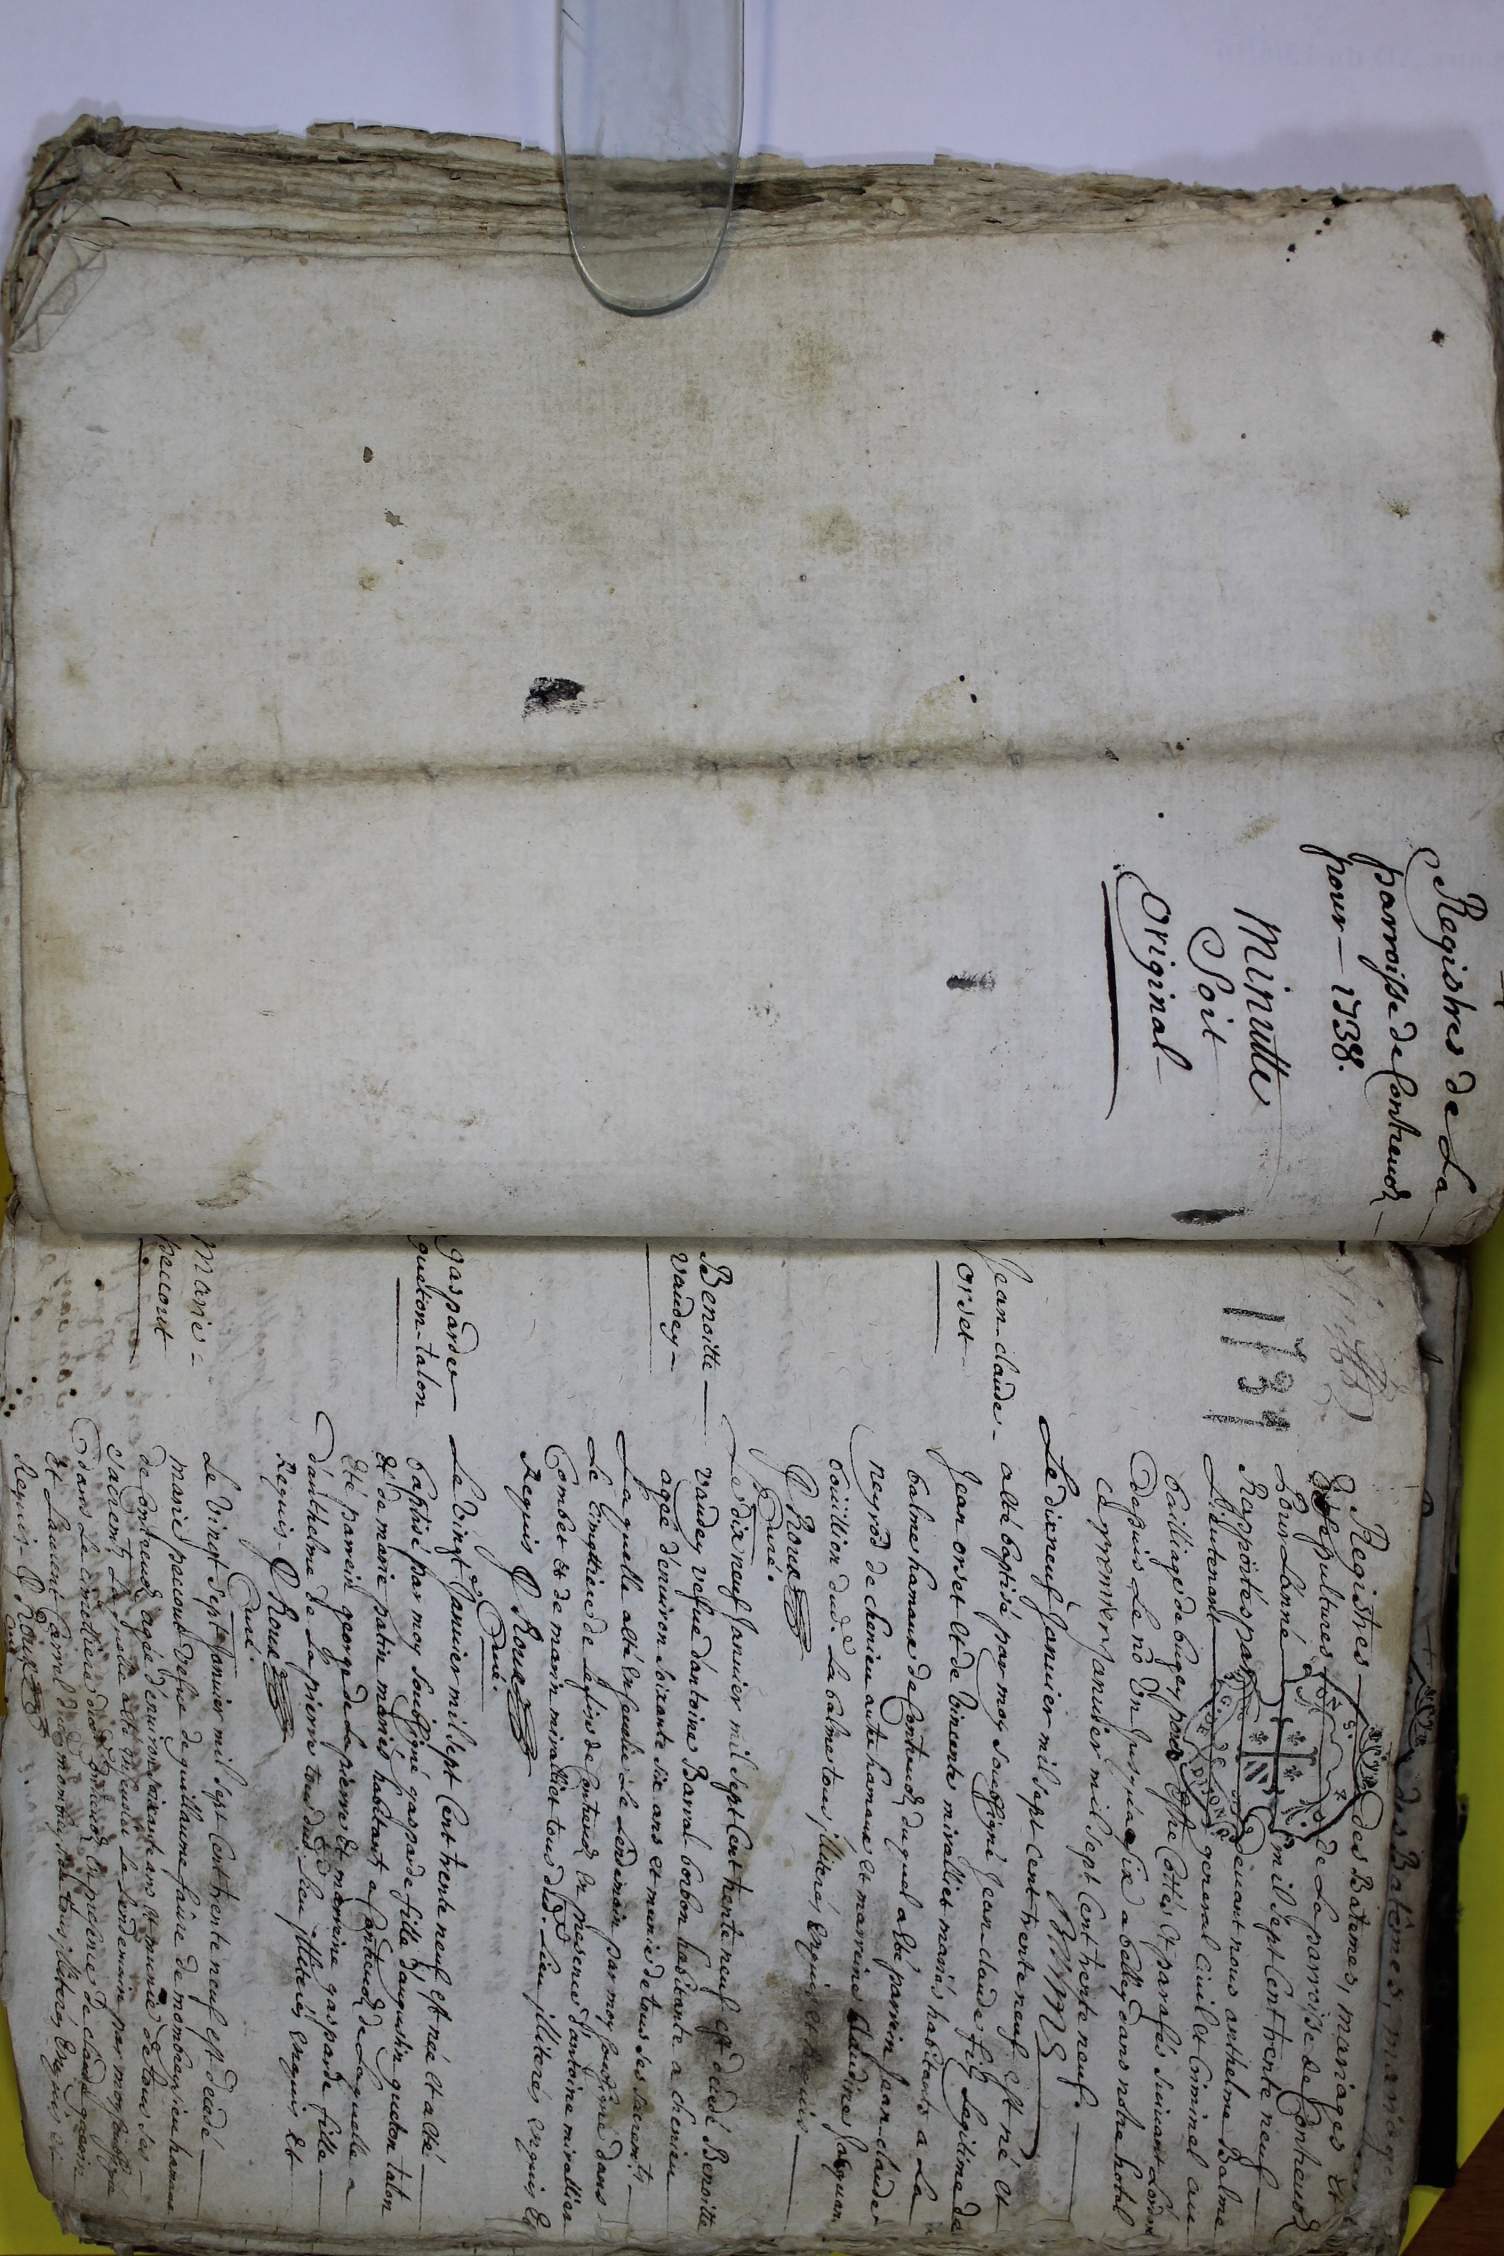 Registres de La
parroisse de Contrevoz
pour – 1738.
Minutte
Soit
Original
1739
Registres des Batêmes, mariages et
Sepultures de La parroisse de Contrevoz
Pour Lanné mil sept Cent trente neuf
par devant nous anthelme Balme
Lieutenant general Civil et Criminel au
bailliage de bugey pour Estre Cottés et parafés suivant Lordre
depuis Le nô Un Jusqua Six a belley dans notre hotel
Ce premier Janvier mil sept Cent trente neuf.
Balme
Jean-claude
orset
Le dix neuf Janvier mil sept cent trente neuf est né et
a êté baptisé par moy Soubsigné Jean-claude fils Legitime de
Jean orset et de Vincente miralliet mariés habitants a La
balme hameau de Contrevoz duquel a êté parrein Jean-claude
neyrod de chenieu autre hameau et marreine Claudine
bouillion dud. La balme tous jlliterés Enquis et Requis
P Roux
Curé.
Benoitte
Vaudey
Le dix neuf Janvier mil sept Cent trente neuf est décédé Benoitte
Vaudey vefue d'antoine Barral bonbon habitante a chenieu
agée d'enuiron Soixante Six ans et munie de tous ses Sacrements
Laquelle a êté Enseuelie Le Lendemain par moy Soubsigné dans
Le Cimetiere de Leglise de Contrevoz En presence d'antoine mirallier
Combet et de marin miralliet tous dud. Lieu jlliterés enquis Et
Requis P Roux
Curé.
gasparde
gueton-talon
Le Vingt Janvier mil sept Cent trente neuf est née et a êté
baptisé par moy Soubsigné gasparde fille d'augustin gueton talon
et de marie patin mariés habitants a Contrevoz de Laquelle a
êté parrein george de Lapierre et marreine gasparde fille
d'anthelme de Lapierre tous dud. Lieu jlliterés enquis et
Requis P Roux
Curé.
Marie
paccout
Le Vingt Sept Janvier mil Sept Cent trente neuf est décédé
marie paccout Vefue de guillaume faure de mombreyzieu hameau
de Contrevoz agée d'enuiron Soixante ans et munie de tous Ses
Sacrements Laquelle a êté inhumée Le Lendemain par moy Soubsigné
dans Le Cimetiere dud. Contrevoz En presence De claude
Et Laurent Carrel tous jlliterés Enquis et
Requis P Roux
Curé